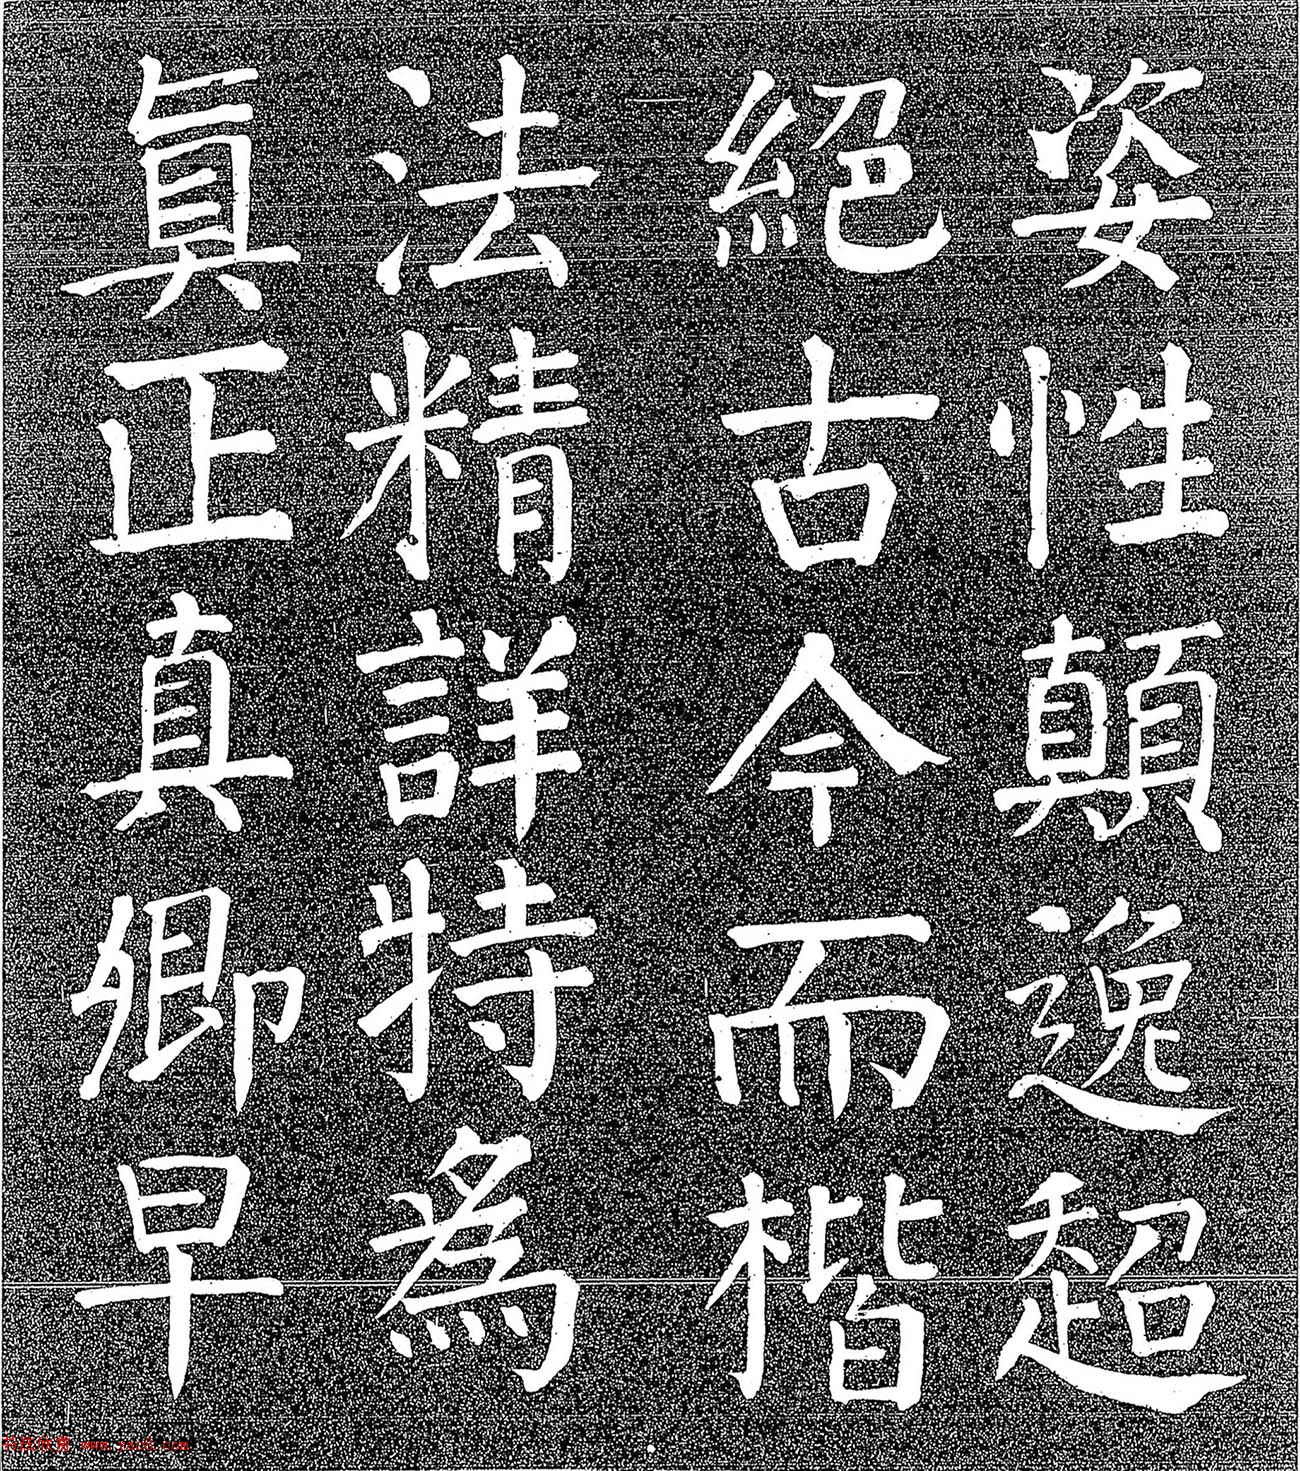 姿性顛逸超
絕古今而楷
法精詳特為
眞正真卿早